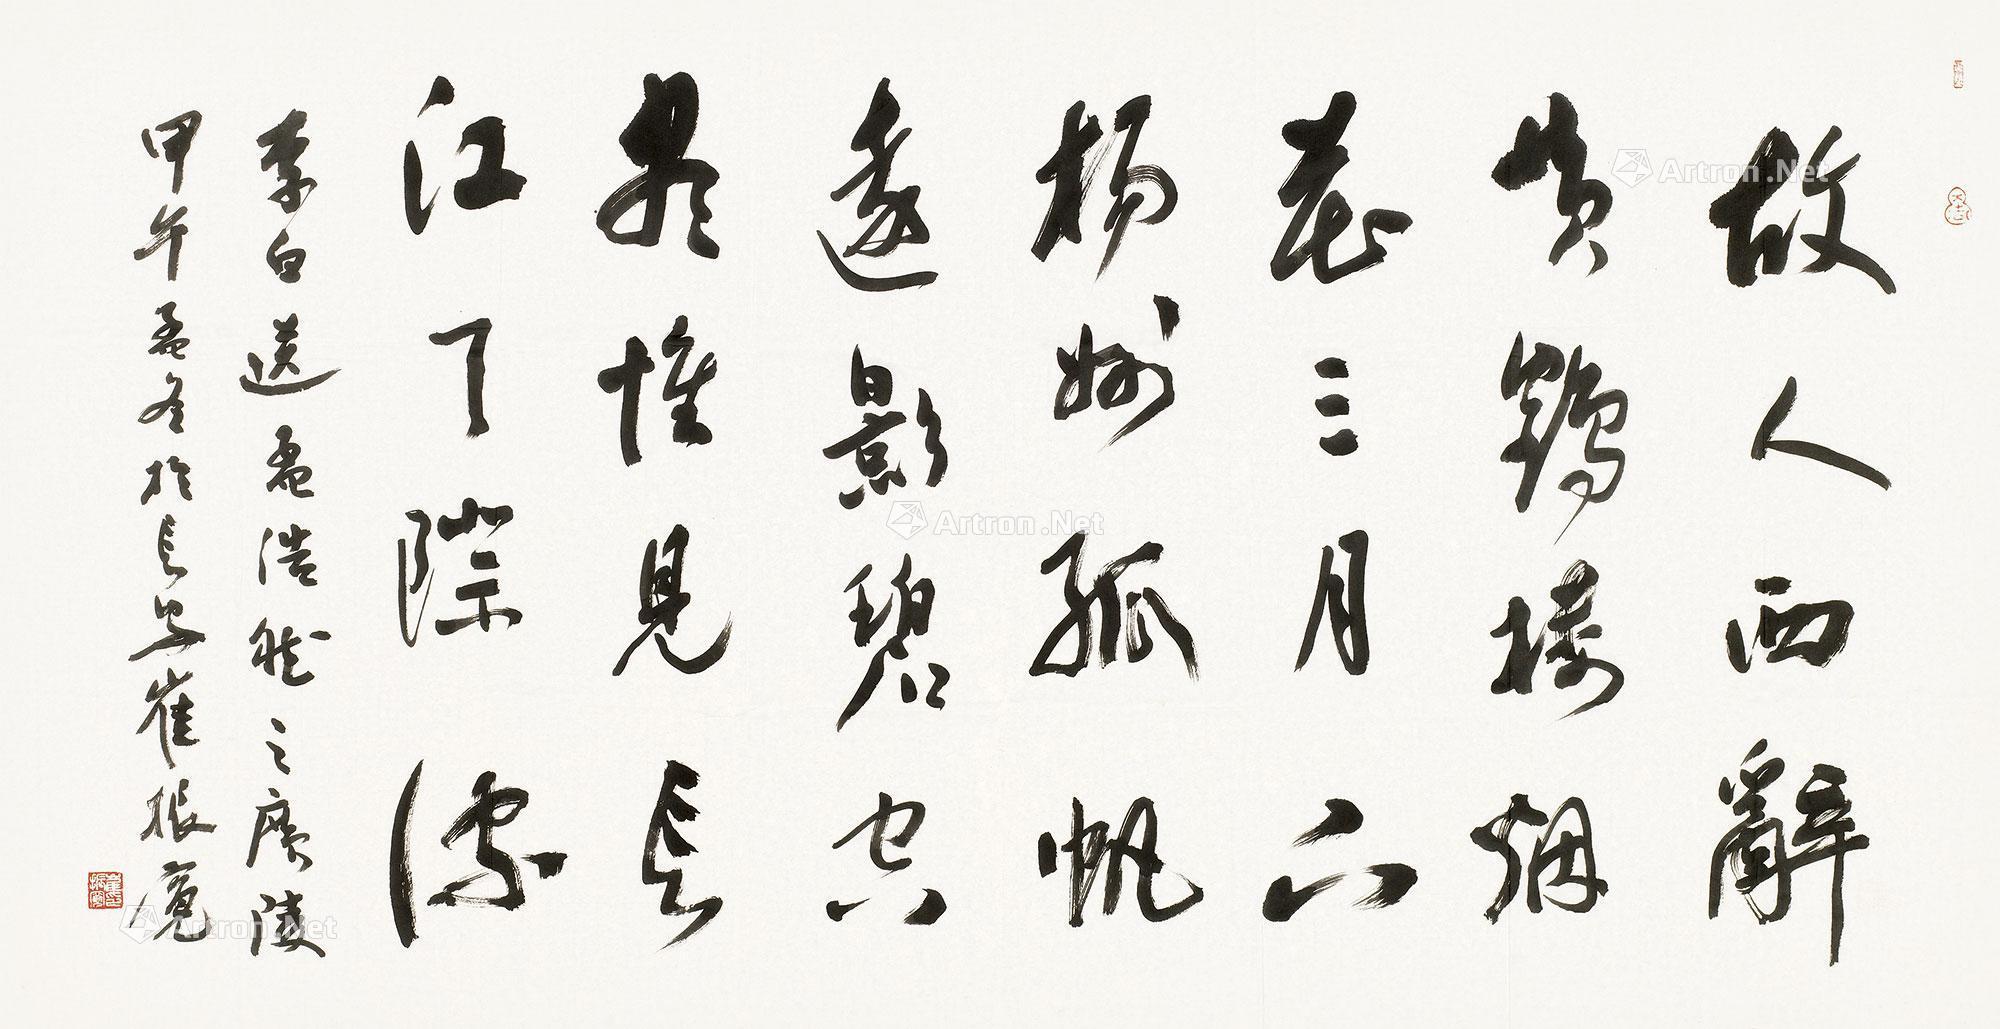 故人西辭
黄鶴楼烟
花三月下
揚州孤帆
遠影碧空
盡惟見長
江天際流
李白送孟浩然之廣陵
甲午孟冬於長安崔振寬
Artron.Net
Artron.Net
Artron.Net